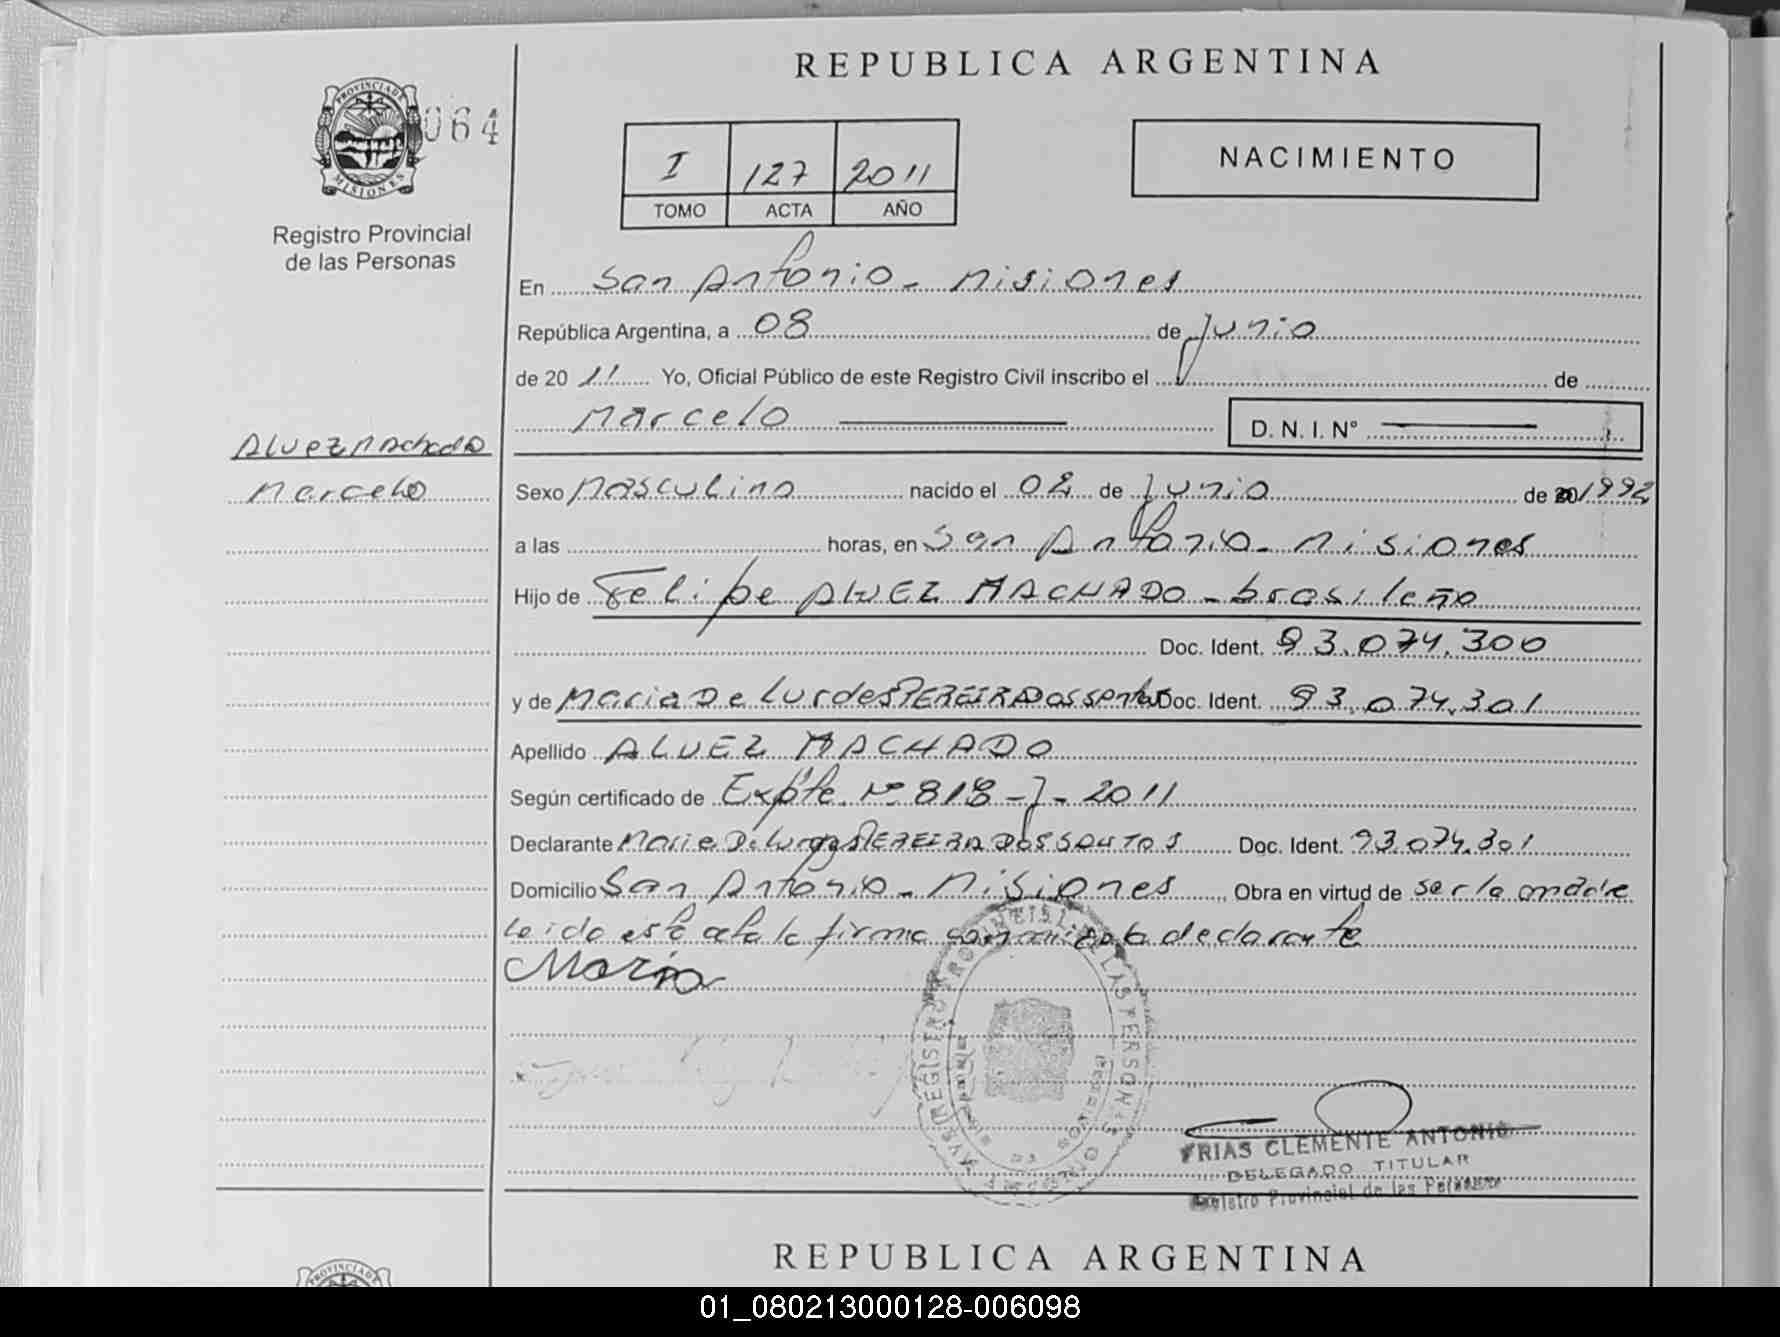 REPUBLICA ARGENTINA
PROVINCIA DE
MISIONES
064
Registro Provincial
de las Personas
I 127 2011
TOMO ACTA AÑO
NACIMIENTO
En San Antonio - Misiones
República Argentina, a 08 de Junio
de 20 11 Yo, Oficial Público de este Registro Civil inscribo el de
Marcelo
D. N. I. Nº
Alvez Machado
Marcelo
Sexo Masculino nacido el 02 de Junio de 20 1992
a las horas, en San Antonio - Misiones
Hijo de Felipe ALVEZ MACHADO - brasileño
Doc. Ident. 93.074.300
y de Maria De Lurdes PEREIRA Dos Santos Doc. Ident. 93.074.301
Apellido ALVEZ MACHADO
Según certificado de Expte. Nº 818 - J - 2011
Declarante Maria De Lurdes PEREIRA DOS SANTOS Doc. Ident. 93.074.301
Domicilio San Antonio - Misiones Obra en virtud de ser la madre
Leida esta acta la firma conmigo la declarante
Maria
FRIAS CLEMENTE ANTONIO
DELEGADO TITULAR
Registro Provincial de las Personas
REPUBLICA ARGENTINA
PROVINCIA DE
01_080213000128-006098